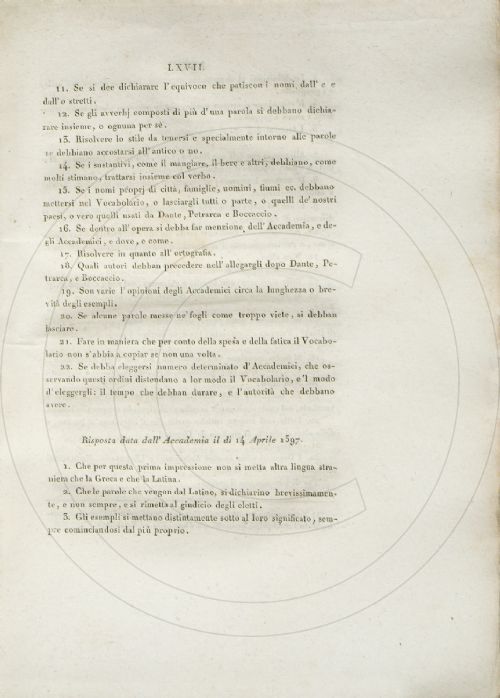 LXVII
11. Se si dee dichiarare l'equivoco che patiscon i nomi dall' e e
dall' o stretti.
12. Se gli avverbj composti di più d'una parola si debbano dichia-
rare insieme, o ognuna per sè.
13. Risolvere lo stile da tenersi e specialmente intorno alle parole
se debbiano accostarsi all'antico o no.
14. Se i sustantivi, come il mangiare, il bere e altri, debbiano, come
molti stimano, trattarsi insieme col verbo.
15. Se i nomi proprj di città, famiglie, uomini, fiumi ec. debbano
mettersi nel Vocabolario, o lasciargli tutti o parte, o quelli de' nostri
paesi, o vero quelli usati da Dante, Petrarca e Boccaccio.
16. Se dentro all' opera si debba far menzione dell' Accademia, e de-
gli Accademici, e dove, e come.
17. Risolvere in quanto all'ortografia.
18. Quali autori debban precedere nell' allegargli dopo Dante, Pe-
trarca, e Boccaccio.
19. Son varie l' opinioni degli Accademici circa la lunghezza o bre-
vità degli esempli.
20. Se alcune parole messe ne' fogli come troppo viete, si debban
lasciare.
21. Fare in maniera che per conto della spesa e della fatica il Vocabo-
lario non s'abbia a copiar se non una volta.
22. Se debba eleggersi numero determinato d'Accademici, che os-
servando questi ordini distendano a lor modo il Vocabolario, e 'l modo
d'eleggergli: il tempo che debban durare, e l'autorità che debbano
avere.
Risposta data dall' Accademia il dì 14 Aprile 1597.
1. Che per questa prima impressione non si metta altra lingua stra-
niera che la Greca e che la Latina.
2. Che le parole che vengon dal Latino, si dichiarino brevissimamen-
te, e non sempre, e si rimetta al giudicio degli eletti.
3. Gli esempli si mettano distintamente sotto al loro significato, sem-
pre cominciandosi dal più proprio.